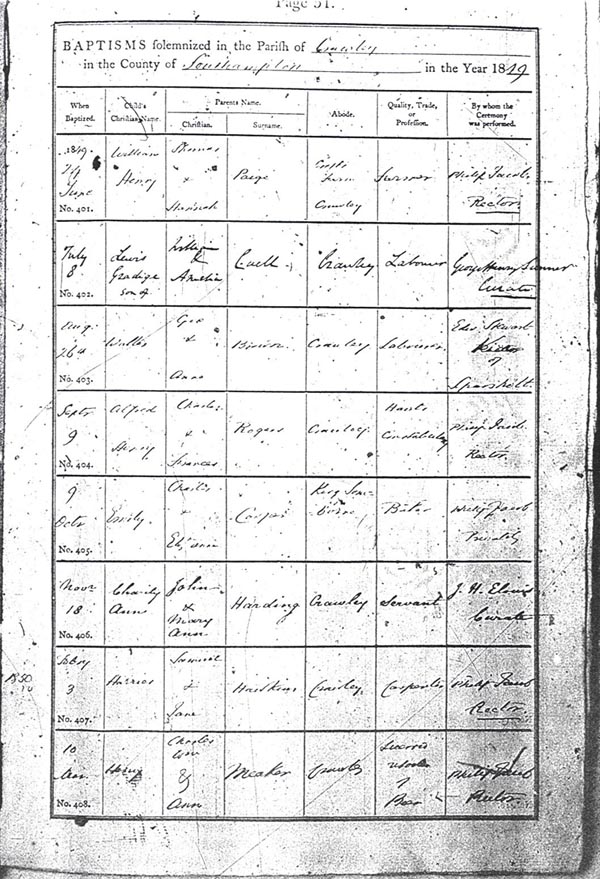 Page 51.
BAPTISMS solemnized in the Parish of Crawley
in the County of Southampton in the Year 1849
When Baptized.
Child's Christian Name.
Parents Name.
Christian.
Surname.
Abode.
Quality, Trade, or Profession.
By whom the Ceremony was performed.
1849.
24
June
No. 401.
William
Henry
Thomas
&
Hannah
Paige
Farm
Crawley
Farmer
Philip Jacob
Rector
July
8
No. 402.
Lewis
Gradige
son of
William
&
Amelia
Crawley
Labourer
George Henry Sumner
Curate
Aug.
26th
No. 403.
Walter
Geo
&
Anne
Brown
Crawley
Labourer
Edw. Stewart
of
Sparsholt.
Septr
9
No. 404.
Alfred
Henry
Charles
&
Frances
Rogers
Crawley
Hants
Constabulary
Philip Jacob
Rector
9
Octr
No. 405.
Emily
Charles
Eliz ann
Cooper
King Som-
borne
Baker
Philip Jacob
Privately
Novr
18
No. 406.
Charity
Ann
John
&
Mary
Ann
Harding
Crawley
Servant
J. H. Elwes
Curate
1850
Feby
3
No. 407.
Samuel
&
Jane
Crawley
Carpenter
Philip Jacob
Rector
10
No. 408.
Henry
Charles
&
Ann
Meaker
Crawley
of
Beer
Philip Jacob
Rector